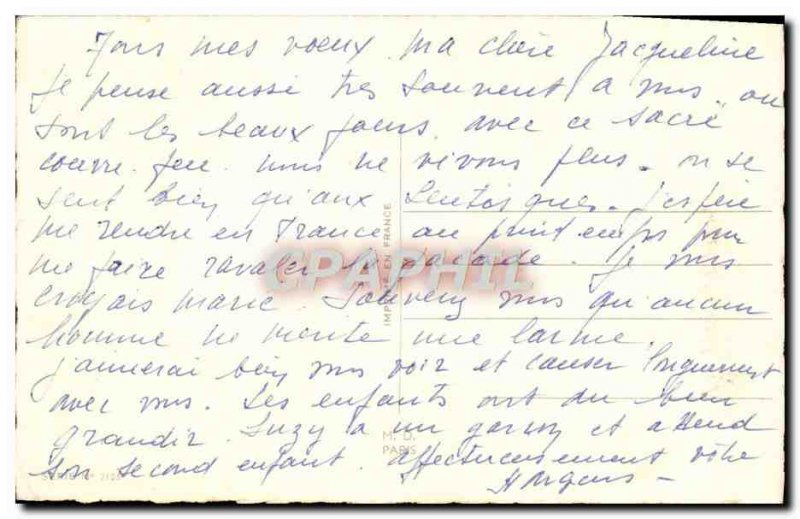 Tous mes voeux ma chère Jacqueline
Je pense aussi très souvent à vous où
sont les beaux jours avec ce sacré
couvre feu nous ne vivons plus. on se
sent bien qu'aux. J'espère
me rendre en France au printemps pour
me faire ravaler la façade. Je vous
croyais mariée. Souvenez vous qu'aucun
homme ne mérite une larme.
J'aimerai bien vous voir et causer longuement
avec vous. Les enfants ont dû bien
grandir. Suzy a un garçon et attend
son second enfant. affectueusement vôtre
IMPRIMÉ EN FRANCE
CPAPHIL
M. D.
PARIS